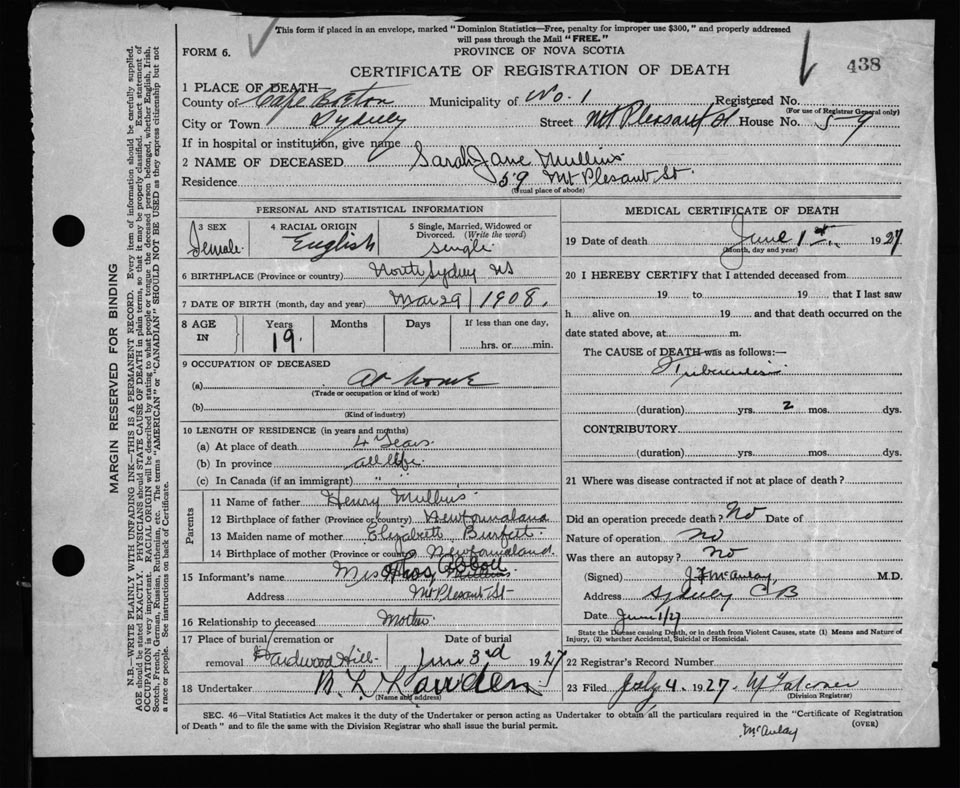 This form if placed in an envelope, marked "Dominion Statistics—Free, penalty for improper use $300," and properly addressed
will pass through the Mail "FREE."
FORM 6.
PROVINCE OF NOVA SCOTIA
CERTIFICATE OF REGISTRATION OF DEATH
438
1 PLACE OF DEATH—
County of Cape Breton Municipality of No. 1 Registered No.
(For use of Registrar General only)
City or Town Sydney Street Mt Pleasant St House No. 59
If in hospital or institution, give name
2 NAME OF DECEASED Sarah Jane Mullins
Residence 59 Mt Plesant St.
(Usual place of abode)
PERSONAL AND STATISTICAL INFORMATION
3 SEX Female
4 RACIAL ORIGIN English
5 Single, Married, Widowed or Divorced. (Write the word) single
6 BIRTHPLACE (Province or country) North Sydney NS
7 DATE OF BIRTH (month, day and year) Mar 29 / 1908.
8 AGE IN Years 19. Months Days If less than one day, hrs. or min.
9 OCCUPATION OF DECEASED
(a) At home
(Trade or occupation or kind of work)
(b)
(Kind of industry)
10 LENGTH OF RESIDENCE (in years and months)
(a) At place of death 4 Years.
(b) In province all life.
(c) In Canada (if an immigrant) "
Parents
11 Name of father Henry Mullins
12 Birthplace of father (Province or country) Newfoundland
13 Maiden name of mother Elizabeth
14 Birthplace of mother (Province or country) Newfoundland.
15 Informant's name Mrs Thos Abbott
Address Mt Plesant St
16 Relationship to deceased Mother
17 Place of burial, cremation or removal Hardwood Hill. Date of burial June 3rd 1927
18 Undertaker
(Name and address)
MEDICAL CERTIFICATE OF DEATH
19 Date of death June 1st. 1927
(Month, day and year)
20 I HEREBY CERTIFY that I attended deceased from
19 to 19 that I last saw
h alive on 19 and that death occurred on the
date stated above, at m.
The CAUSE of DEATH was as follows:—
Tuberculosis
(duration) yrs. 2 mos. dys.
CONTRIBUTORY.
(duration) yrs. mos. dys.
21 Where was disease contracted if not at place of death?
Did an operation precede death? No Date of
Nature of operation No
Was there an autopsy? No
(Signed) McAulay, M.D.
Address Sydney CB
Date June 1/27
State the Disease causing Death, or in death from Violent Causes, state (1) Means and Nature of
Injury, (2) whether Accidental, Suicidal or Homicidal.
22 Registrar's Record Number
23 Filed July 4. 1927. M Falconer
(Division Registrar)
SEC. 46—Vital Statistics Act makes it the duty of the Undertaker or person acting as Undertaker to obtain all the particulars required in the "Certificate of Registration
of Death" and to file the same with the Division Registrar who shall issue the burial permit.
(OVER)
McAulay
MARGIN RESERVED FOR BINDING
N.B.—WRITE PLAINLY WITH UNFADING INK—THIS IS A PERMANENT RECORD. Every item of information should be carefully supplied.
AGE should be stated EXACTLY. PHYSICIANS should STATE CAUSE OF DEATH in plain terms, so that it may be properly classified. Exact statement of
OCCUPATION is very important. RACIAL ORIGIN will be described by stating to what people or tongue the deceased person belonged, whether English, Irish,
Scotch, French, German, Russian, Ruthenian, etc. The terms "AMERICAN" or "CANADIAN" SHOULD NOT BE USED as they express citizenship but not
a race or people. See instructions on back of Certificate.